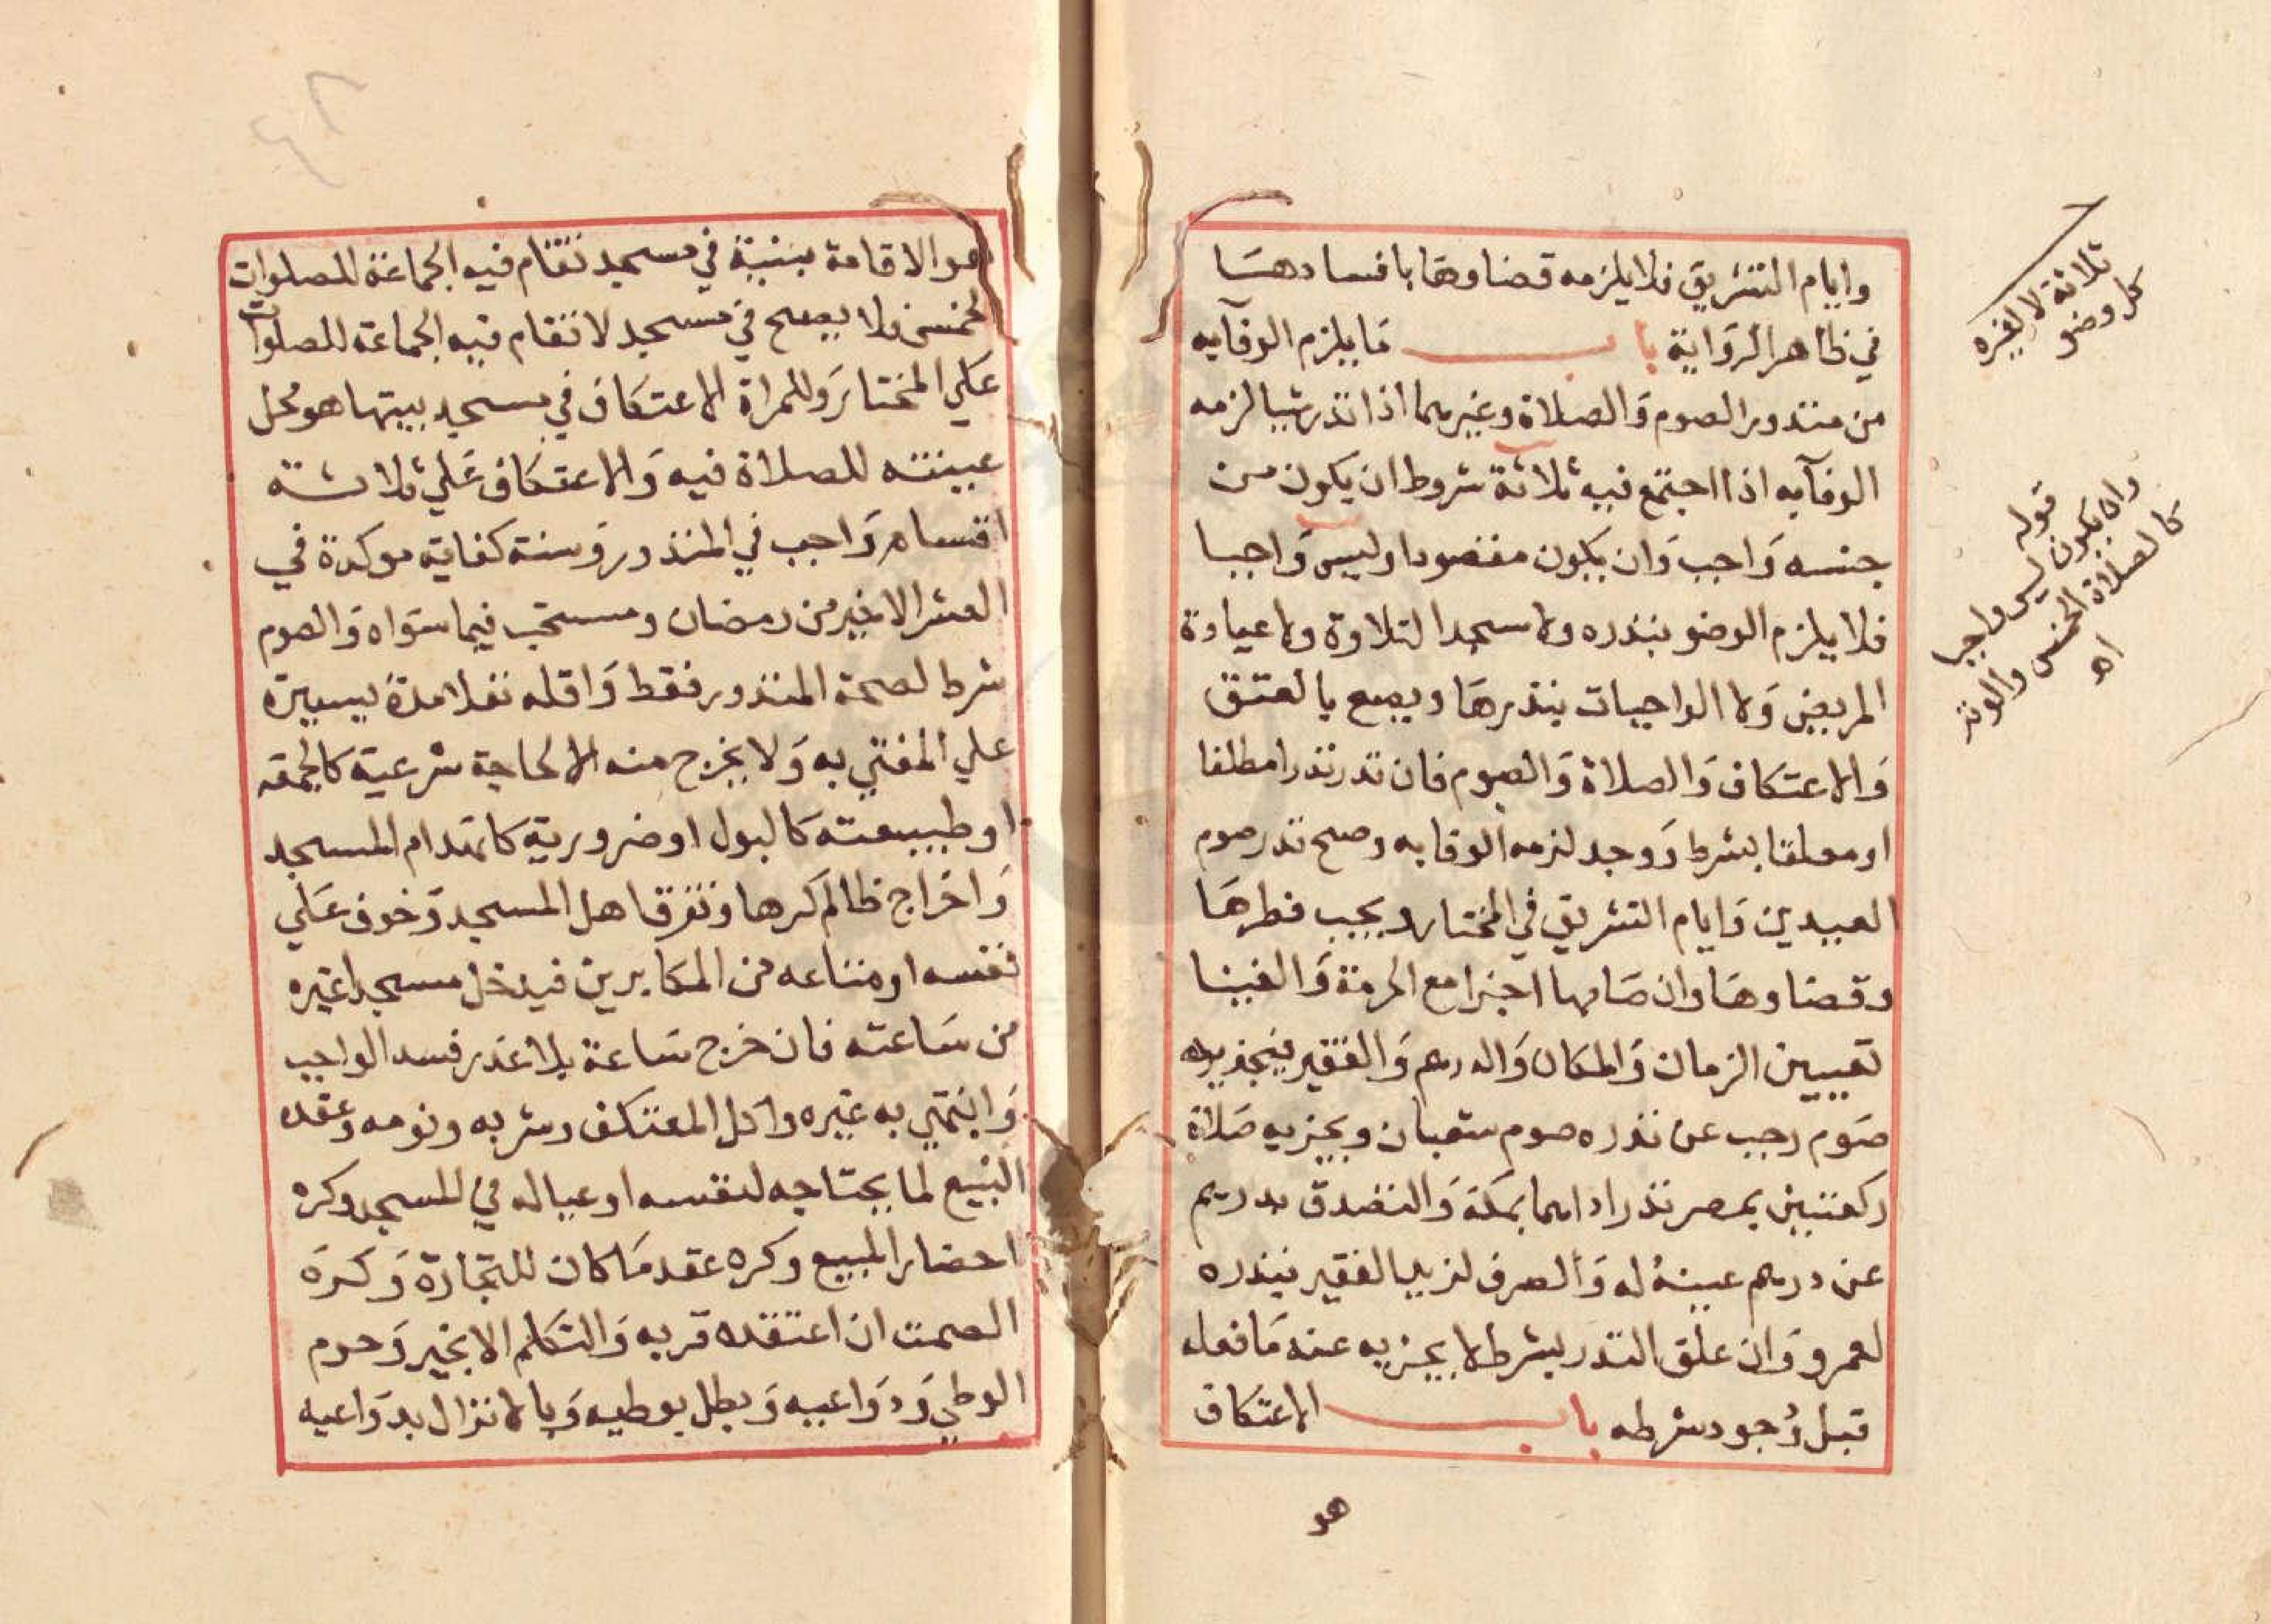 وايام التشريق فلا يلزمه قضاوها بافسادها
في ظاهر الرواية باب ما يلزم الوفآبه
من منذور الصوم والصلاة وغيرهما اذا نذر شيا لزمه
الوفآبه اذا اجتمع فيه ثلاثة شروط ان يكون من
جنسه واجب وان يكون مقصودا وليس واجبا
فلا يلزم الوضو بنذره ولا سجدا لتلاوة ولا عيادة
المريض ولا الواجبات بنذرها ويصح بالعتق
والاعتكاف والصلاة والصوم فان نذر نذرا مطلقا
او معلقا بشرط ووجد لزمه الوفا به وصح نذر صوم
العيدين وايام التشريق في المختار ويجب فطرها
وقضاوها وان صامها اجزا مع الحرمة والغينا
تعيين الزمان والمكان والدرهم والفقير فيجزيه
صوم رجب عن نذره صوم شعبان ويجزيه صلاة
ركعتين بمصر نذر اداهما بمكة والتصدق بدرهم
عن درهم عينه له والصرف لزيد الفقير بنذره
لعمرو وان علق النذر بشرط لا يجزيه عنه ما فعله
قبل وجود شرطه باب الاعتكاف
هو
ثلاثة لا لغيره
كل وضو
قوله
وان يكون ليس واجبا
كالصلاة الخمس والوتر
اه
هو الاقامة بنية في مسجد تقام فيه الجماعة للصلوات
الخمس فلا يصح في مسجد لا تقام فيه الجماعة للصلوات
علي المختار وللمراة الاعتكاف في مسجد بيتها هو محل
عينته للصلاة فيه والاعتكاف علي ثلاثة
اقسام واجب في المنذور وسنة كفاية موكدة في
العشر الاخير من رمضان ومستحب فيما سواه والصوم
شرط لصحة المنذور فقط واقله نفلا مدة يسيرة
علي المفتي به ولا يخرج منه الا لحاجة شرعية كالجمعة
او طبيعته كالبول او ضرورية كانهدام المسجد
واخراج ظالم كرها وتفرق اهل المسجد وخوف علي
نفسه او متاعه من المكابرين فيدخل مسجدا غيره
من ساعته فان خرج ساعة بلا عذر فسد الواجب
وانتهي به غيره واكل المعتكف وشربه ونومه وعقده
البيع لما يحتاجه لنفسه او عياله في المسجد وكره
احضار المبيع وكره عقد ما كان للتجارة وكره
الصمت ان اعتقده قربه والتكلم الا بخير وحرم
الوطي ودواعيه وبطل بوطيه وبالانزال بدواعيه